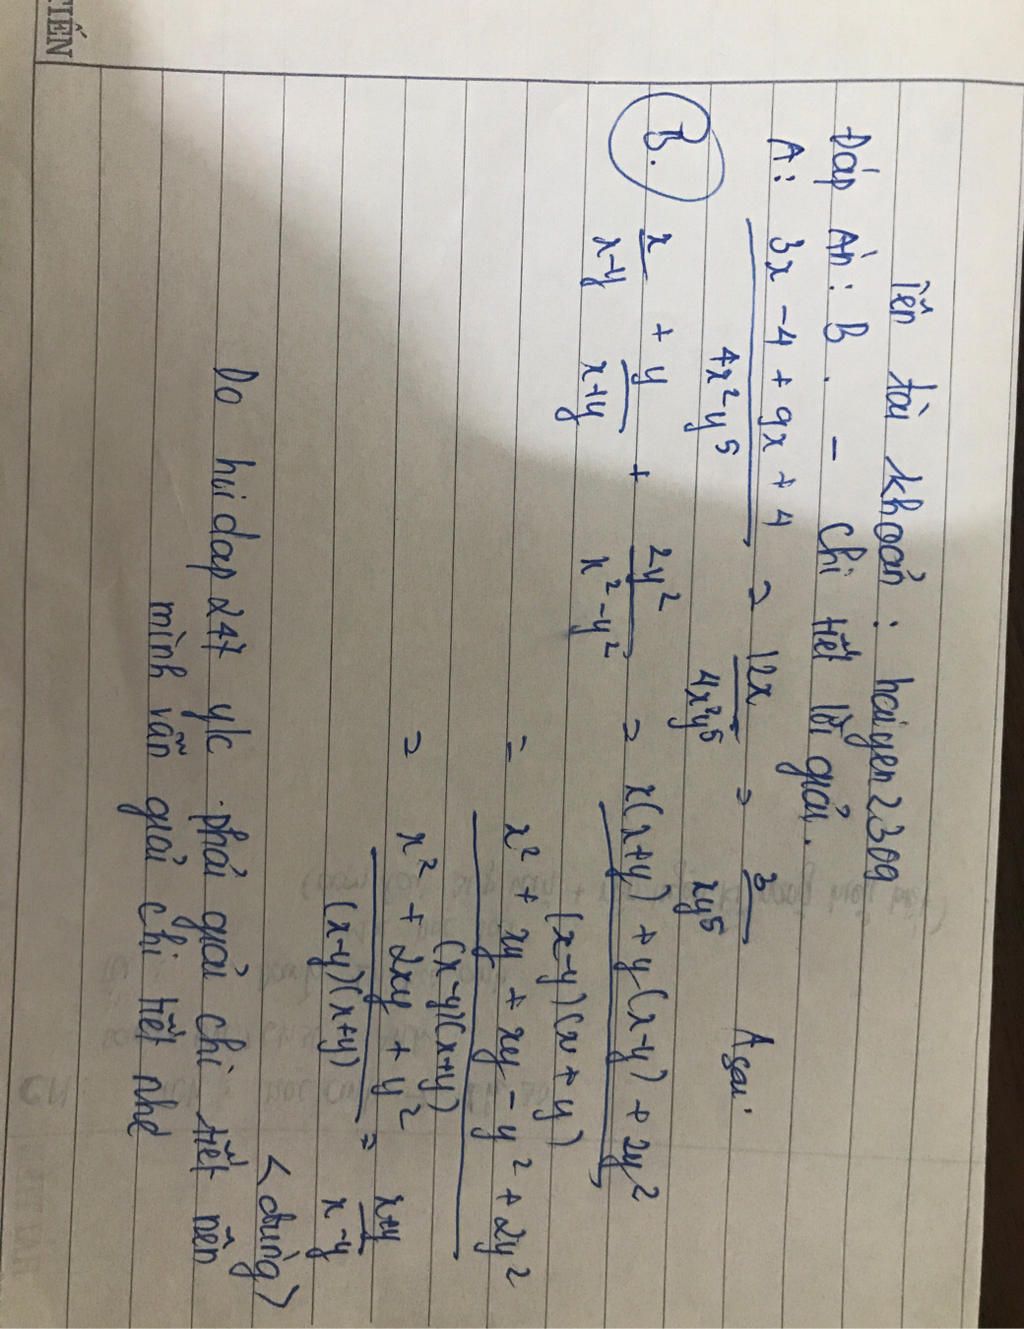 TIẾN
Tên tài khoản : haiyen2309
Đáp Án : B . - Chi tiết lời giải .
A : 3x - 4 + 9x + 4 / 4x²y⁵ = 12x / 4x²y⁵ = 3 / xy⁵ A sai
B. x / x-y + y / x+y + 2y² / x²-y² = x(x+y) + y(x-y) + 2y² / (x-y)(x+y)
= x² + xy + xy - y² + 2y² / (x-y)(x+y)
= x² + 2xy + y² / (x-y)(x+y) = x+y / x-y
< đúng >
Do hoidap247 y/c phải giải chi tiết nên
mình vẫn giải chi tiết nhé